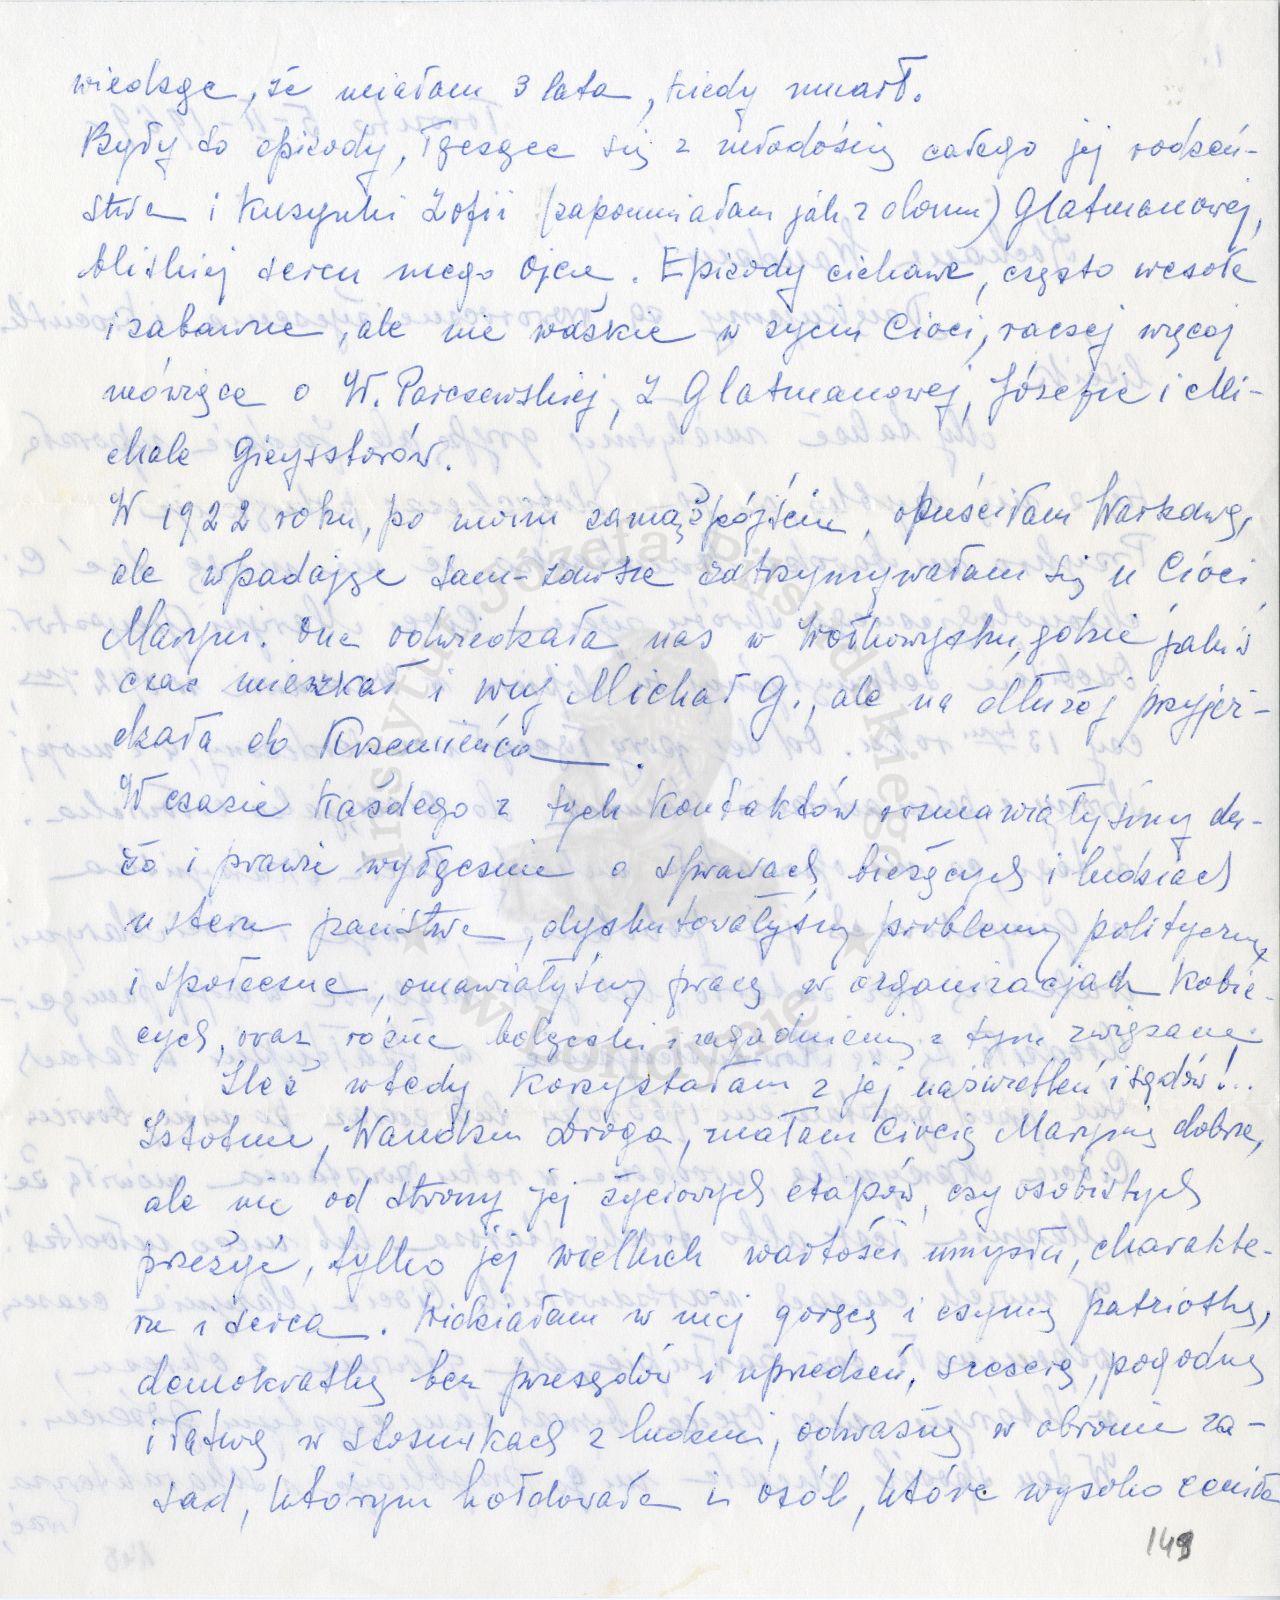 wiedząc, że miałam 3 lata, kiedy umarł.
Były to epizody, łączące się z młodością całego jej rodzeń-
stwa i kuzynki Zofii (zapomniałam jak z domu) Glatmanowej,
bliskiej sercu mego Ojca. Epizody ciekawe, często wesołe
i zabawne, ale nie ważkie w życiu Cioci, raczej więcej
mówiące o W. Parczewskiej, Z Glatmanowej, Józefie i Mi-
chale Gieysztorów.
W 1922 roku, po moim zamążpójściu, opuściłam Warszawę,
ale wpadając tam - zawsze zatrzymywałam się u Cioci
Maryni. Ona odwiedzała nas w Wołkowysku, gdzie jakiś
czas mieszkał i wuj Michał G., ale na dłużej przyjeż-
dżała do Krzemieńca.
W czasie każdego z tych kontaktów rozmawiałyśmy du-
żo i prawie wyłącznie o sprawach bieżących i ludziach
u steru państwa, dyskutowałyśmy problemy polityczne
i społeczne, omawiałyśmy pracę w organizacjach kobie-
cych, oraz różne bolączki i zagadnienia z tym związane.
Ileż wtedy korzystałam z jej naświetleń i sądów!..
Istotnie, Wandziu Droga, znałam Ciocię Marynię dobrze,
ale nie od strony jej życiowych etapów, czy osobistych
przeżyć, tylko jej wielkich wartości umysłu, charakte-
ru i serca. Widziałam w niej gorącą i czynną patriotkę,
demokratkę bez przesądów i uprzedzeń, szczerą, pogodną
i łatwą w stosunkach z ludźmi, odważną w obronie za-
sad, którym hołdowała i osób, które wysoko ceniła
149
Instytut Józefa Piłsudskiego
w Londynie